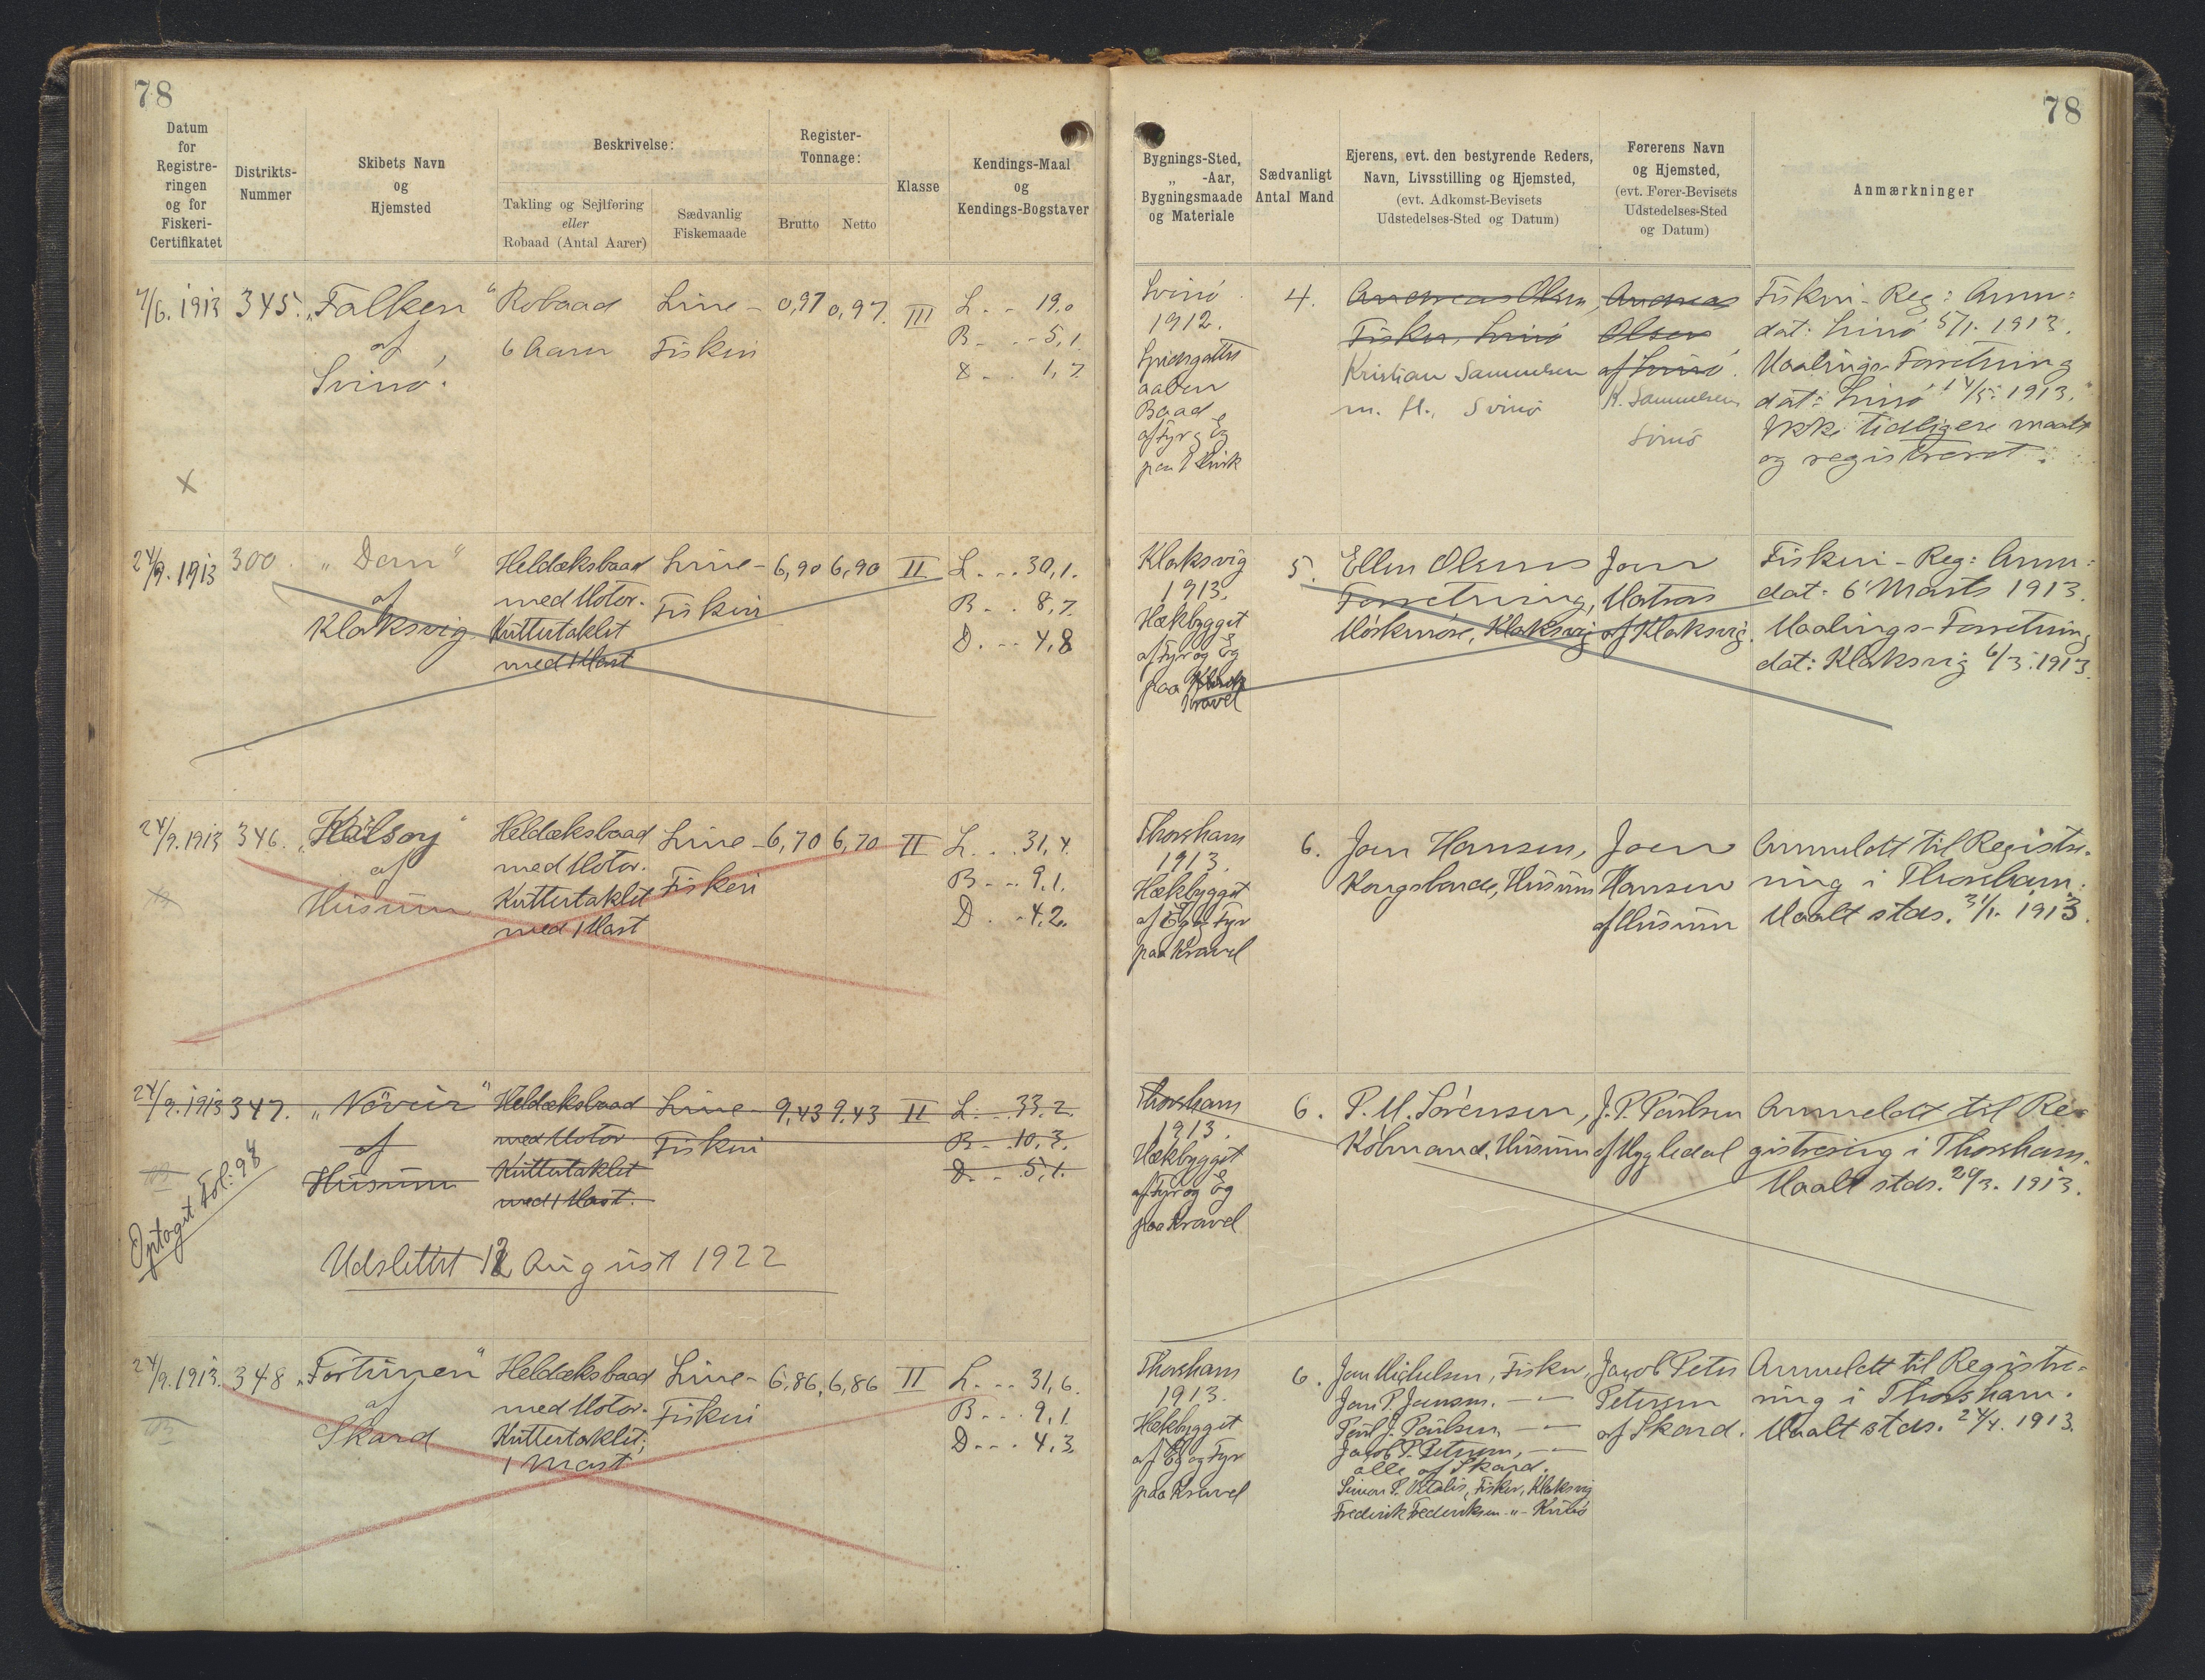 78
Datum
for
Registre-
ringen
og for
Fiskeri-
Certifikatet
Distrikts-
Nummer
Skibets Navn
og
Hjemsted
Beskrivelse:
Takling og Sejlføring
eller
Robaad (Antal Aarer)
Sædvanlig
Fiskemaade
Register-
Tonnage:
Brutto
Netto
Klasse
Kendings-Maal
og
Kendings-Bogstaver
4/6. 1913
345.
„Falken“
af
Svinö.
Robaad
6 Aarer
Line-
Fiskeri
0,97
0,97.
III
L. - - 19,0
B. - - 5,1
D. - - 1,7
X
24/9. 1913
300.
„Dan“
af
Klaksvig
Heldæksbaad
med Motor.
Kuttertaklet
med 1 Mast
Line-
Fiskeri
6,90
6,90
II
L. . . 30,1.
B. . . 8,7.
D. - - 4,8
24/9. 1913
346.
„Kalsoy“
af
Husum
Heldæksbaad
med Motor.
Kuttertaklet
med 1 Mast
Line-
Fiskeri
6,70
6,70
II
L. . . 31,4.
B. - - 9,1.
D. . - 4,2.
24/9. 1913
347.
„Növeir“
af
Husum
Heldæksbaad
med Motor
Kuttertaklet
med 1 Mast.
Line-
Fiskeri
9,43
9,43
II
L. - - 33,2.
B. - 10,3.
D. - - 5,1.
Optaget Fol: 98
Udslettet 12 August 1922
24/9. 1913.
348
„Fortunen“
af
Skard
Heldæksbaad
med Motor.
Kuttertaklet;
1 Mast
Line-
Fiskeri
6,86,
6,86
II
L. - - 31,6.
B. - - 9,1
D. - - 4,3
78
Bygnings-Sted,
„ -Aar,
Bygningsmaade
og Materiale
Sædvanligt
Antal Mand
Ejerens, evt. den bestyrende Reders,
Navn, Livsstilling og Hjemsted,
(evt. Adkomst-Bevisets
Udstedelses-Sted og Datum)
Førerens Navn
og Hjemsted,
(evt. Fører-Bevisets
Udstedelses-Sted
og Datum)
Anmærkninger
Svinö
1912.
Spidsgattet
aaben
Baad
af Fyr og Eg
paa Klink
4.
Andreas Olsen,
Fisker, Svinö
Kristian Samuelsen
m. fl., Svinö
Andreas
Olsen
af Svinö.
K. Samuelsen
Svinö
Fiskeri-Reg: Anm:
dat: Svinö 5/1. 1913.
Maalings-Forretning
dat: Svinö 14/5. 1913.
Ikke tidligere maalt
og registreret.
Klaksvig
1913.
Hækbygget
af Fyr og Eg
paa
Kravel
5.
Ellen Olsens
Forretning,
Mörkenöre, Klaksvig
Joen
Matras
af Klaksvig.
Fiskeri-Reg: Anm:
dat: 6 Marts 1913.
Maalings-Forretning
dat: Klaksvig 6/3. 1913.
Thorshavn
1913.
Hækbygget
af Eg og Fyr
paa Kravel
6.
Joen Hansen,
Kongsbonde, Husum
Joen
Hansen
af Husum
Anmeldt til Registre-
ring i Thorshavn.
Maalt stds. 31/1. 1913.
Thorshavn
1913.
Hækbygget
af Fyr og Eg
paa Kravel
6.
P. M. Sörensen,
Köbmand, Husum
J. P. Poulsen
af Mygledal
Anmeldt til Re-
gistrering i Thorshavn.
Maalt stds. 29/3. 1913.
Thorshavn
1913.
Hækbygget
af Eg og Fyr
paa Kravel
6.
Joen Michelsen, Fisker,
Joen P. Joensen. - -
Poul J. Poulsen - -
Jacob P. Petersen, - -
alle af Skard.
Simon P. Vitalis, Fisker, Klaksvig
Frederik Frederiksen - „ - Kunö
Jacob Peter
Petersen
af Skard.
Anmeldt til Registre-
ring i Thorshavn.
Maalt stds. 24/4. 1913.